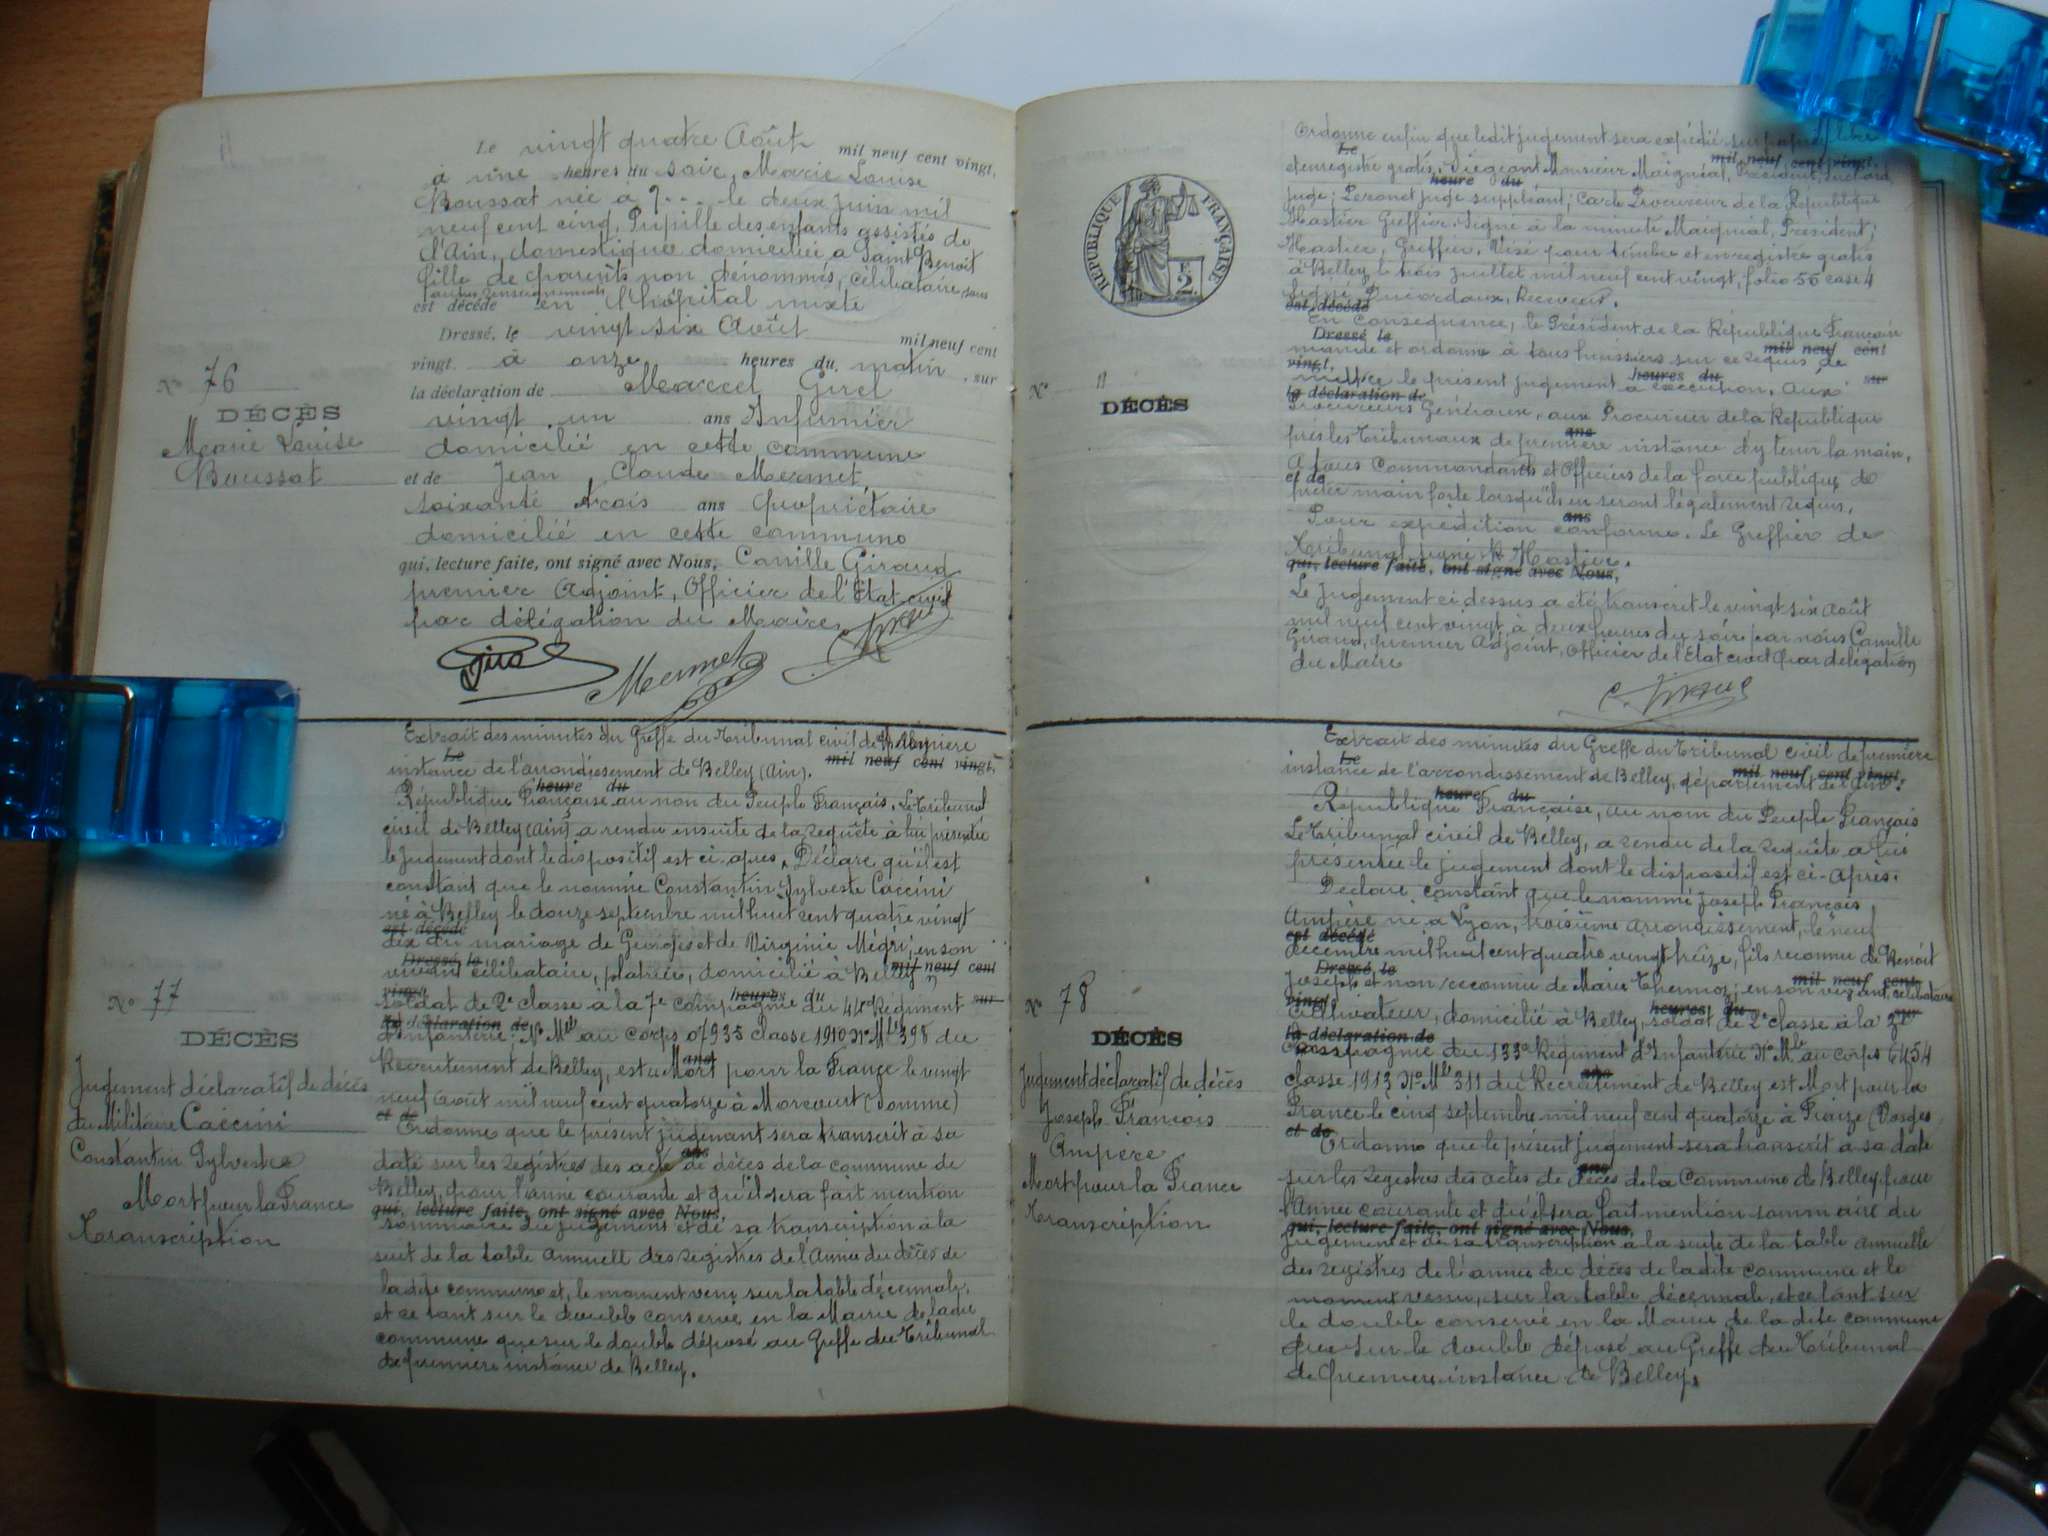 Le vingt quatre Août mil neuf cent vingt,
à une heures du soir, Marie Louise
Boussat née à ?... le deux juin mil
neuf cent cinq, Pupille des enfants assistés de
l'Ain, domestique domiciliée a Saint Benoit
fille de parents non dénommés, célibataire, sans
autres renseignements
est décédé en l'hôpital mixte
Dressé, le vingt six Août mil neuf cent
vingt à onze heures du matin, sur
la déclaration de Marcel Girel
vingt un ans Infirmier
domicilié en cette commune
et de Jean Claude Mermet
soixante trois ans Propriétaire
domicilié en cette commune
qui, lecture faite, ont signé avec Nous, Camille Giraud
premier Adjoint, Officier de l'État civil
par délégation du Maire
Mermet
No 76
DÉCÈS
Marie Louise
Boussat
Extrait des minutes du Greffe du Tribunal civil de première
Le mil neuf cent vingt,
instance de l'arrondissement de Belley (Ain).
heure du
République Française au nom du Peuple Français. Le Tribunal
civil de Belley (Ain) a rendu ensuite de la requête à lui présentée
le jugement dont le dispositif est ci-après. Déclare qu'il est
constant que le nommé Constantin Sylvestre Caccini
né à Belley le douze septembre mil huit cent quatre vingt
est décédé
dix du mariage de Georges et de Virginie Négri; en son
Dressé, le mil neuf cent
vivant célibataire, plâtrier, domicilié à Belley,
vingt heures du sur
soldat de 2e classe à la 7e compagnie du 44e Régiment
la déclaration de
d'infanterie. No Mle au corps 07935 classe 1910 No Mle 398 du
ans
Recrutement de Belley, est Mort pour la France le vingt
neuf août mil neuf cent quatorze à Morcourt (Somme)
et de
Ordonne que le présent jugement sera transcrit à sa
ans
date sur les registres des acte de décès de la commune de
Belley, pour l'année courante et qu'il sera fait mention
qui, lecture faite, ont signé avec Nous,
sommaire du jugement et de sa transcription à la
suit de la table annuell des registres de l'Année du décès de
la dite commune et, le moment venu sur la table décennale,
et ce tant sur le double conservé en la Mairie de ladite
commune que sur le double déposé au Greffe du Tribunal
de première instance de Belley.
No 77
DÉCÈS
Jugement déclaratif de décès
du Militaire Caccini
Constantin Sylvestre
Mort pour la France
Transcription
Ordonne enfin que ledit jugement sera expédié sur papier libre
Le mil neuf cent vingt,
et enregistré gratis. Siégeant Monsieur Maignial, Président,
heure du
juge; Peronet juge suppléant; Procureur de la République
Hastier Greffier. Signé à la minute Maignial, Président;
Hastier, Greffier. Visé pour timbre et enregistré gratis
à Belley, le trois juillet mil neuf cent vingt, folio 56 case 4
est décédé
Receveur.
En conséquence, le Président de la République Française
Dressé le mil neuf cent
mande et ordonne à tous huissiers sur ce requis, de
vingt, heures du sur
mettre le présent jugement à exécution. Aux
la déclaration de
Procureurs Généraux, aux Procureur de la République
ans
près les tribunaux de première instance d'y tenir la main,
A tous Commandants et Officiers de la force publique de
et de
prêter main forte lorsqu'ils en seront légalement requis,
ans
Pour expédition conforme. Le Greffier de
Tribunal, signé Hastier.
qui, lecture faite, ont signé avec Nous,
Le jugement ci dessus a été transcrit le vingt six août
mil neuf cent vingt, à deux heures du soir par nous Camille
Giraud, premier Adjoint, Officier de l'État civil par délégation
du Maire
RÉPUBLIQUE FRANÇAISE
2
No "
DÉCÈS
Extrait des minutes du Greffe du Tribunal civil de première
Le mil neuf cent vingt,
instance de l'arrondissement de Belley, département de l'Ain.
heures du
République Française, au nom du Peuple Français
Le Tribunal civil de Belley, a rendu de la requête a lui
présentée le jugement dont le dispositif est ci-après.
Déclare constant que le nommé Joseph François
Ampère né à Lyon, troisième arrondissement, le neuf
est décédé
décembre mil huit cent quatre vingt treize, fils reconnu de Benoit
Dressé, le mil neuf cent
Joseph et non reconnu de Marie Thermoz; en son vivant, célibataire
vingt heures du sur
cultivateur, domicilié à Belley, soldat de 2e classe à la
la déclaration de
Compagnie du 133e Régiment d'Infanterie No Mle au corps 6454
ans
classe 1913 No Mle 311 du Recrutement de Belley est Mort pour la
France le cinq septembre mil neuf cent quatorze à Fraize (Vosges
et de
Ordonne que le présent jugement sera transcrit a sa date
ans
sur les registres des actes de décès de la Commune de Belley pour
l'Année courante et qu'il sera fait mention sommaire du
qui, lecture faite, ont signé avec Nous,
jugement et de sa transcription à la suite de la table annuelle
des registres de l'année du décès de ladite commune et le
moment venu, sur la table décennale, et ce tant sur
le double conservé en la Mairie de la dite commune
que sur le double déposé au Greffe du Tribunal
de première instance de Belley.
No 78
DÉCÈS
Jugement déclaratif de décès
Joseph François
Ampère
Mort pour la France
Transcription